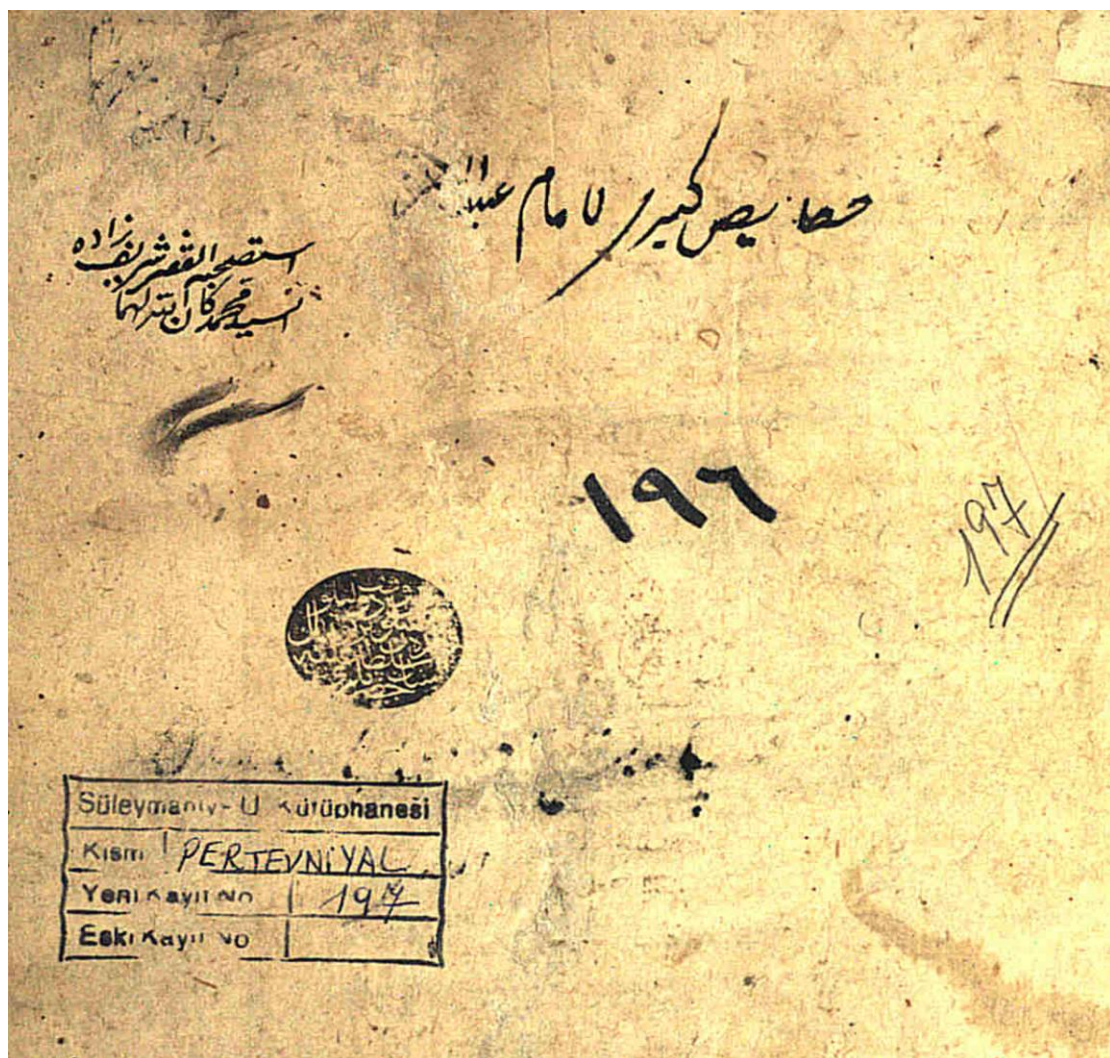 خصايص كبيرى لامام عبد
استصحبه الفقير شريف زاده
السيد محمد كان الله لهما
١٩٦
197
Süleymaniye U Kütüphanesi
Kısmı PERTEVNİYAL
Yeni Kayıt No 197
Eski Kayıt No